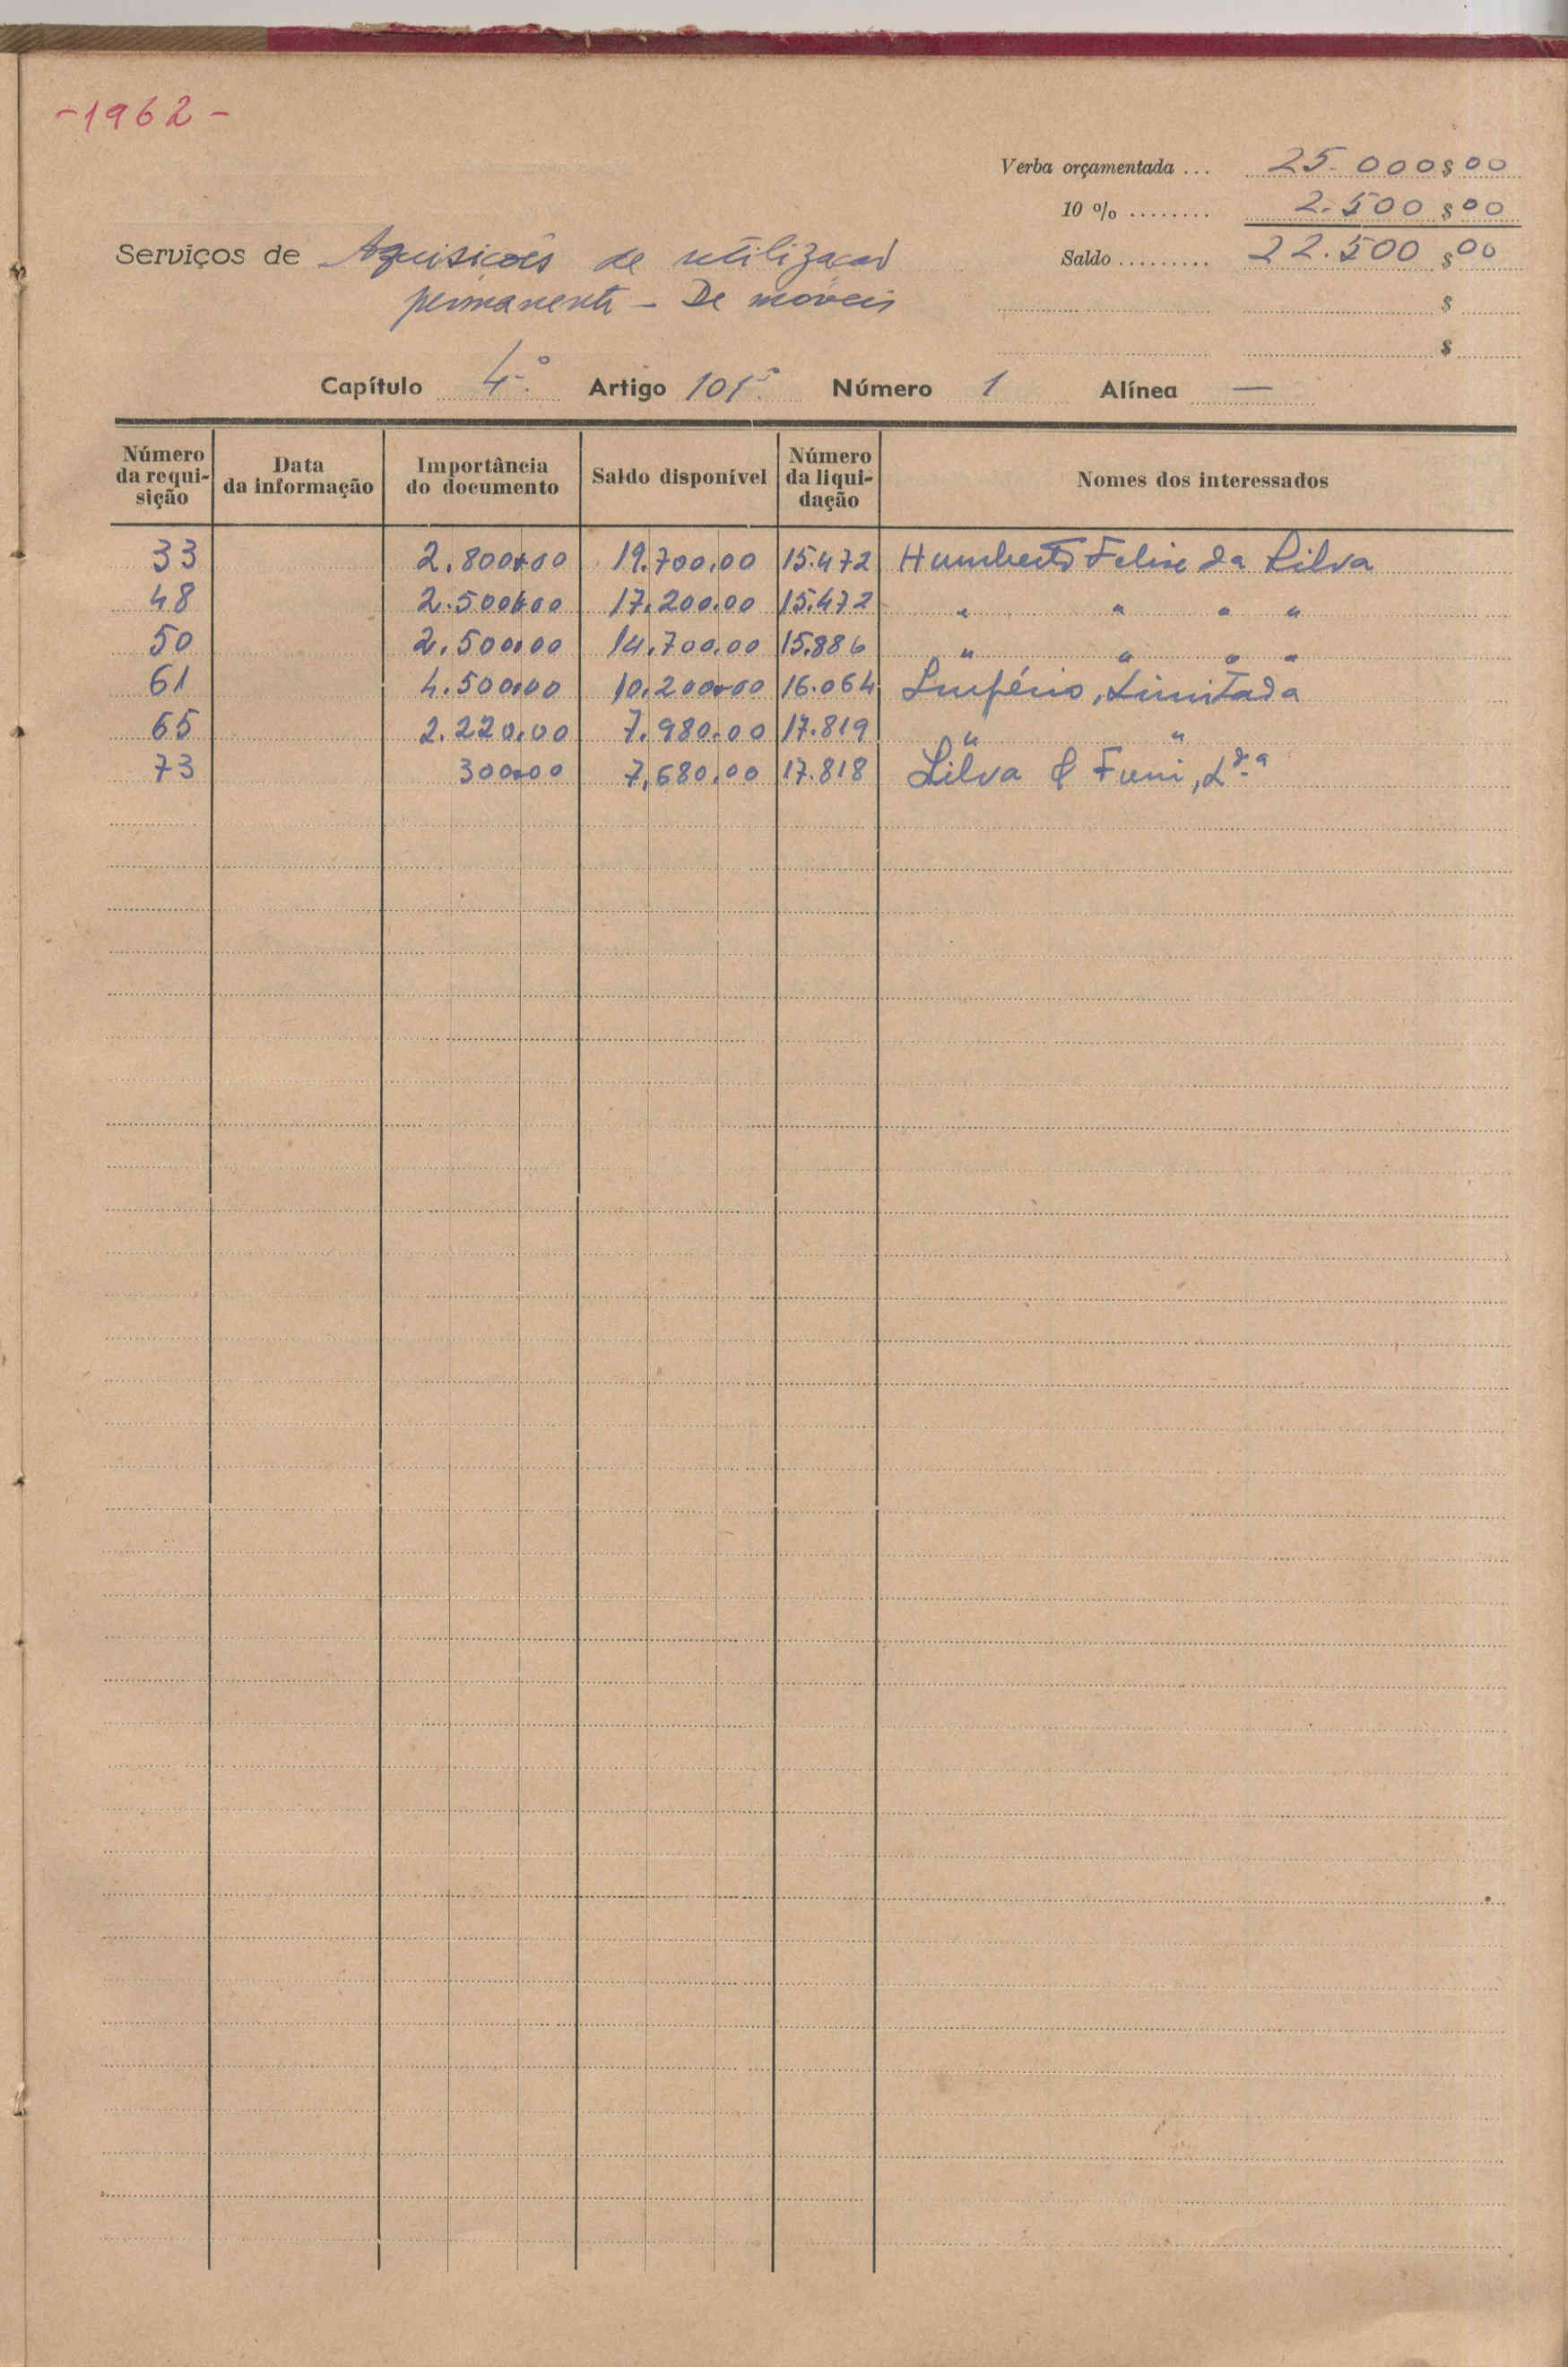 -1962-
Verba orçamentada ... 25.000$00
10 % ........ 2.500$00
Serviços de Aquisições de utilização Saldo ......... 22.500$00
permanente - De móveis $
$
Capítulo 4.º Artigo 101.º Número 1 Alínea —
Número da requi-sição Data da informação Importância do documento Saldo disponível Número da liqui-dação Nomes dos interessados
33 2.800,00 19.700,00 15.472 Humberto Felix da Silva
48 2.500,00 17.200,00 15.472 " " " "
50 2.500,00 14.700,00 15.886 " " " "
61 4.500,00 10.200,00 16.064 Limitada
65 2.220,00 7.980,00 17.819 " "
73 300,00 7.680,00 17.818 Silva & L.da